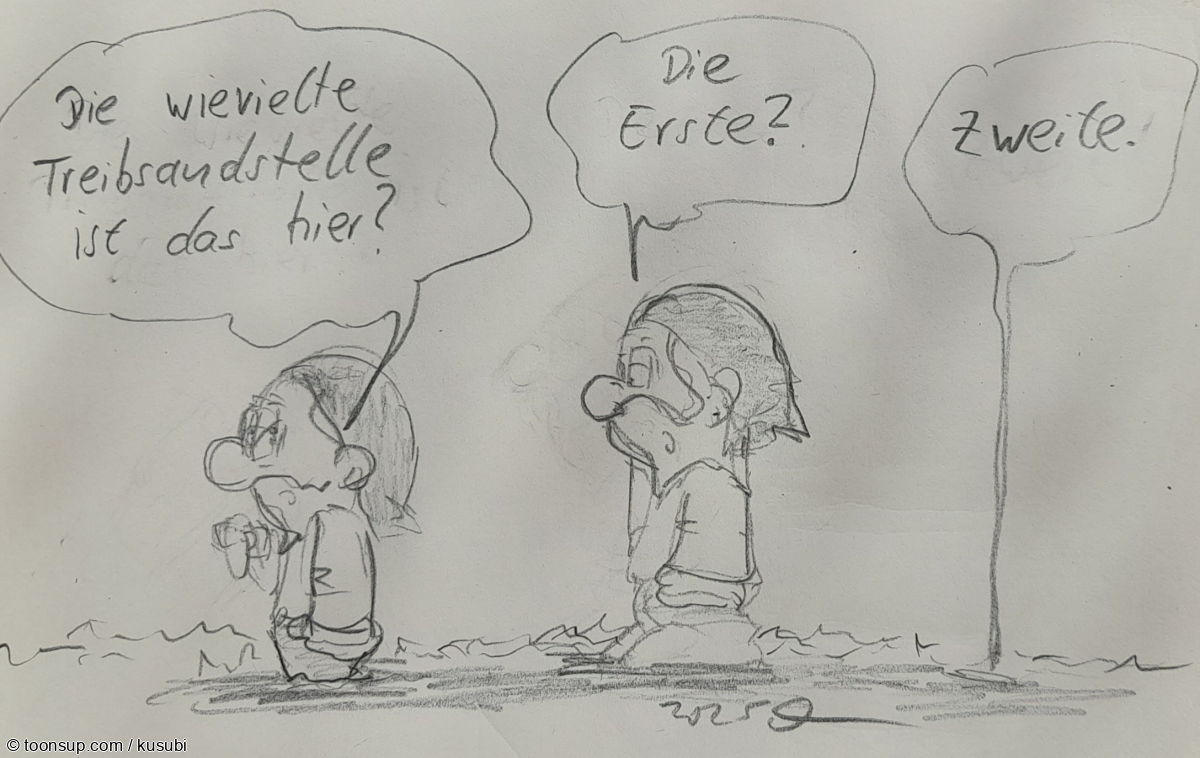 Die wievielte
Treibsandstelle
ist das hier?
Die
Erste?
Zweite.
2025
© toonsup.com / kusubi